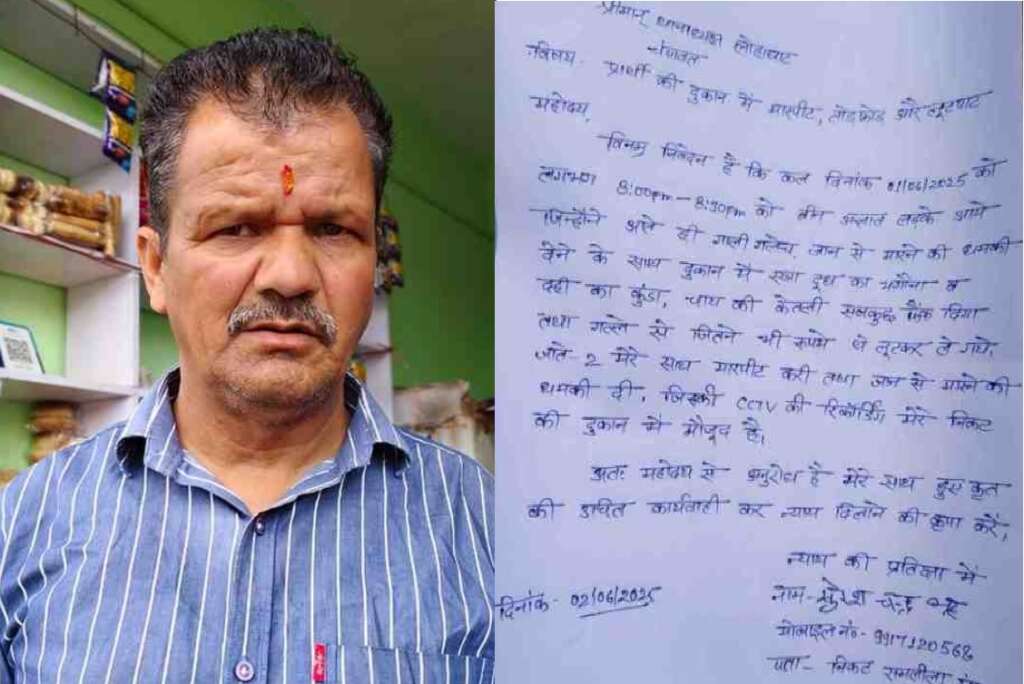 श्रीमान् थानाध्यक्ष लोहाघाट
चम्पावत
विषय- प्रार्थी की दुकान में मारपीट, तोडफोड और लूटपाट
महोदय,
विनम्र निवेदन है कि कल दिनांक 01/06/2025 को
लगभग 8:00pm - 8:30pm को तीन अज्ञात लड़के आये
जिन्होंने आते ही गाली गलौच, जान से मारने की धमकी
देने के साथ दुकान में रखा दूध का भगौना व
दही का कुंडा, चाय की केतली सबकुछ फेंक दिया
तथा गल्ले से जितने भी रूपये थे लूटकर ले गये.
जाते-2 मेरे साथ मारपीट करी तथा जान से मारने की
धमकी दी, जिसकी CCTV की रिकॉर्डिंग मेरे निकट
की दुकान में मौजूद है।
अतः महोदय से अनुरोध है मेरे साथ हुए कृत
की उचित कार्यवाही कर न्याय दिलाने की कृपा करें।
न्याय की प्रतिक्षा में
दिनांक- 02/06/2025
नाम- सुरेश चन्द्र
मोबाइल नं०- 9917120568
पता- निकट रामलीला